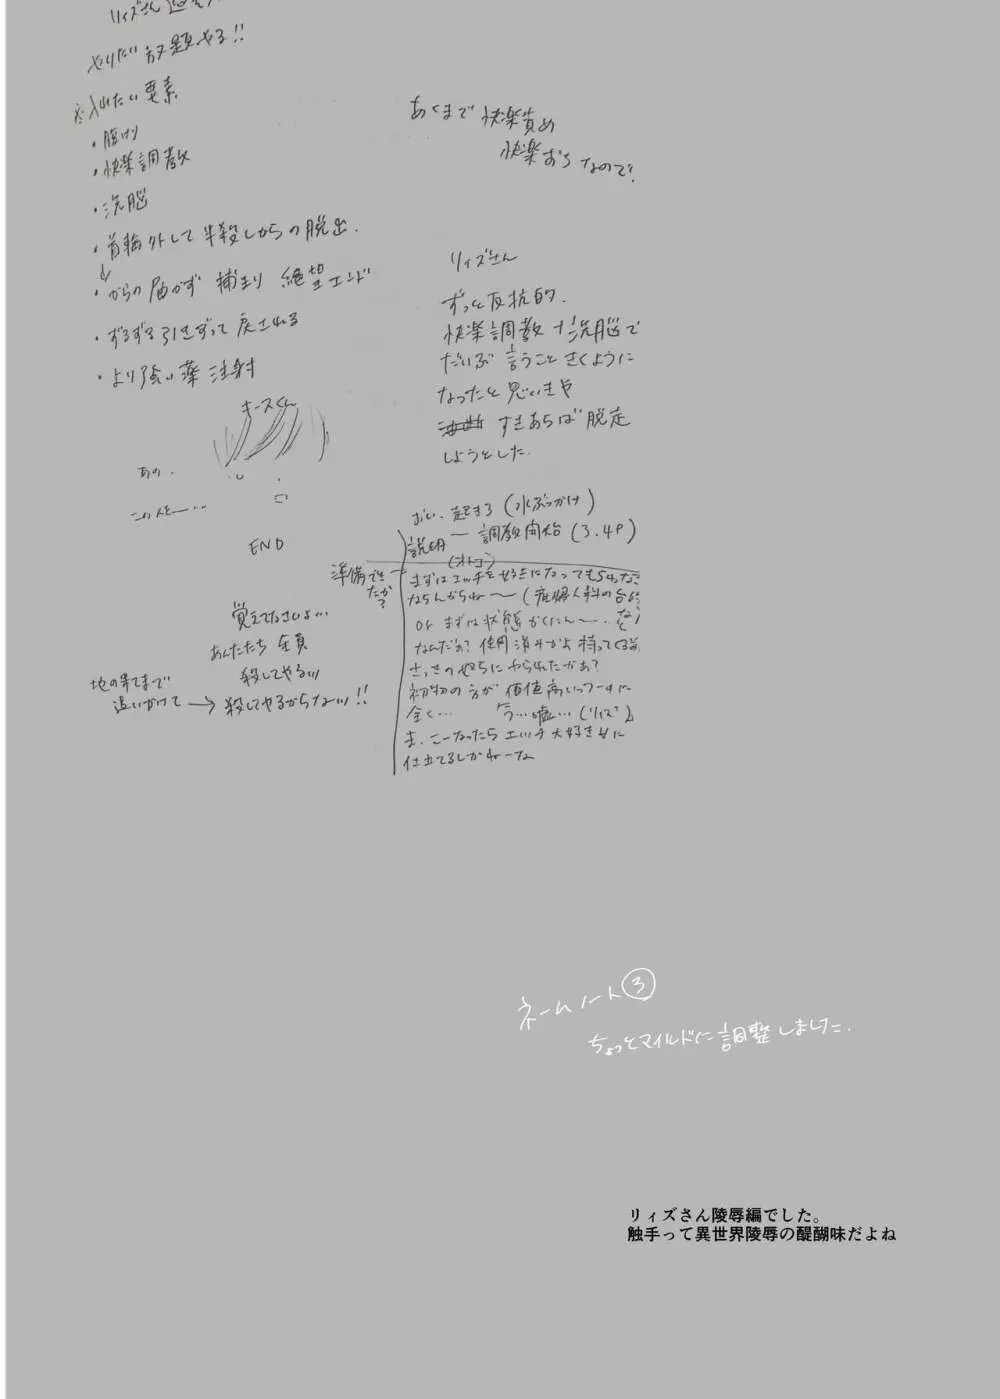 リィズさん
やりたい放題やる!!
※入れたい要素
・腹けり
・快楽調教
・洗脳
・首輪外して半殺しからの脱出.
・からの届かず 捕まり 絶望エンド
・ずるずる引きずって戻される
・より強い薬 注射
キースくん
あの.
END
覚えてなさいよ…
あんたたち 全員
殺してやるッ
地の果てまで
追いかけて → 殺してやるからなァッ!!
あくまで 快楽責め
快楽おち なので!
リィズさん
ずっと反抗的.
快楽調教+洗脳で
だいぶ 言うこときくように
なったと思いきや
すきあらば 脱走
しようとした.
おい. 起きろ (水ぶっかけ)
説明 ― 調教開始 (3.4P)
(オトコ)
準備でき
たか?
まずはエッチを好きになってもらわな
ならんからね〜 (産婦人科の台
or まずは状態かくにん〜.
なんだぁ? 使用済みかよ 持ってくる前
さっきの奴らにやられたかぁ?
初物の方が 価値高いっつーのに
全く… う…嘘…(リィズ)
ま. こーなったら エッチ大好き女に
仕立てるしかねーな
ネームノート③
ちょっとマイルドに調整しました.
リィズさん陵辱編でした。
触手って異世界陵辱の醍醐味だよね